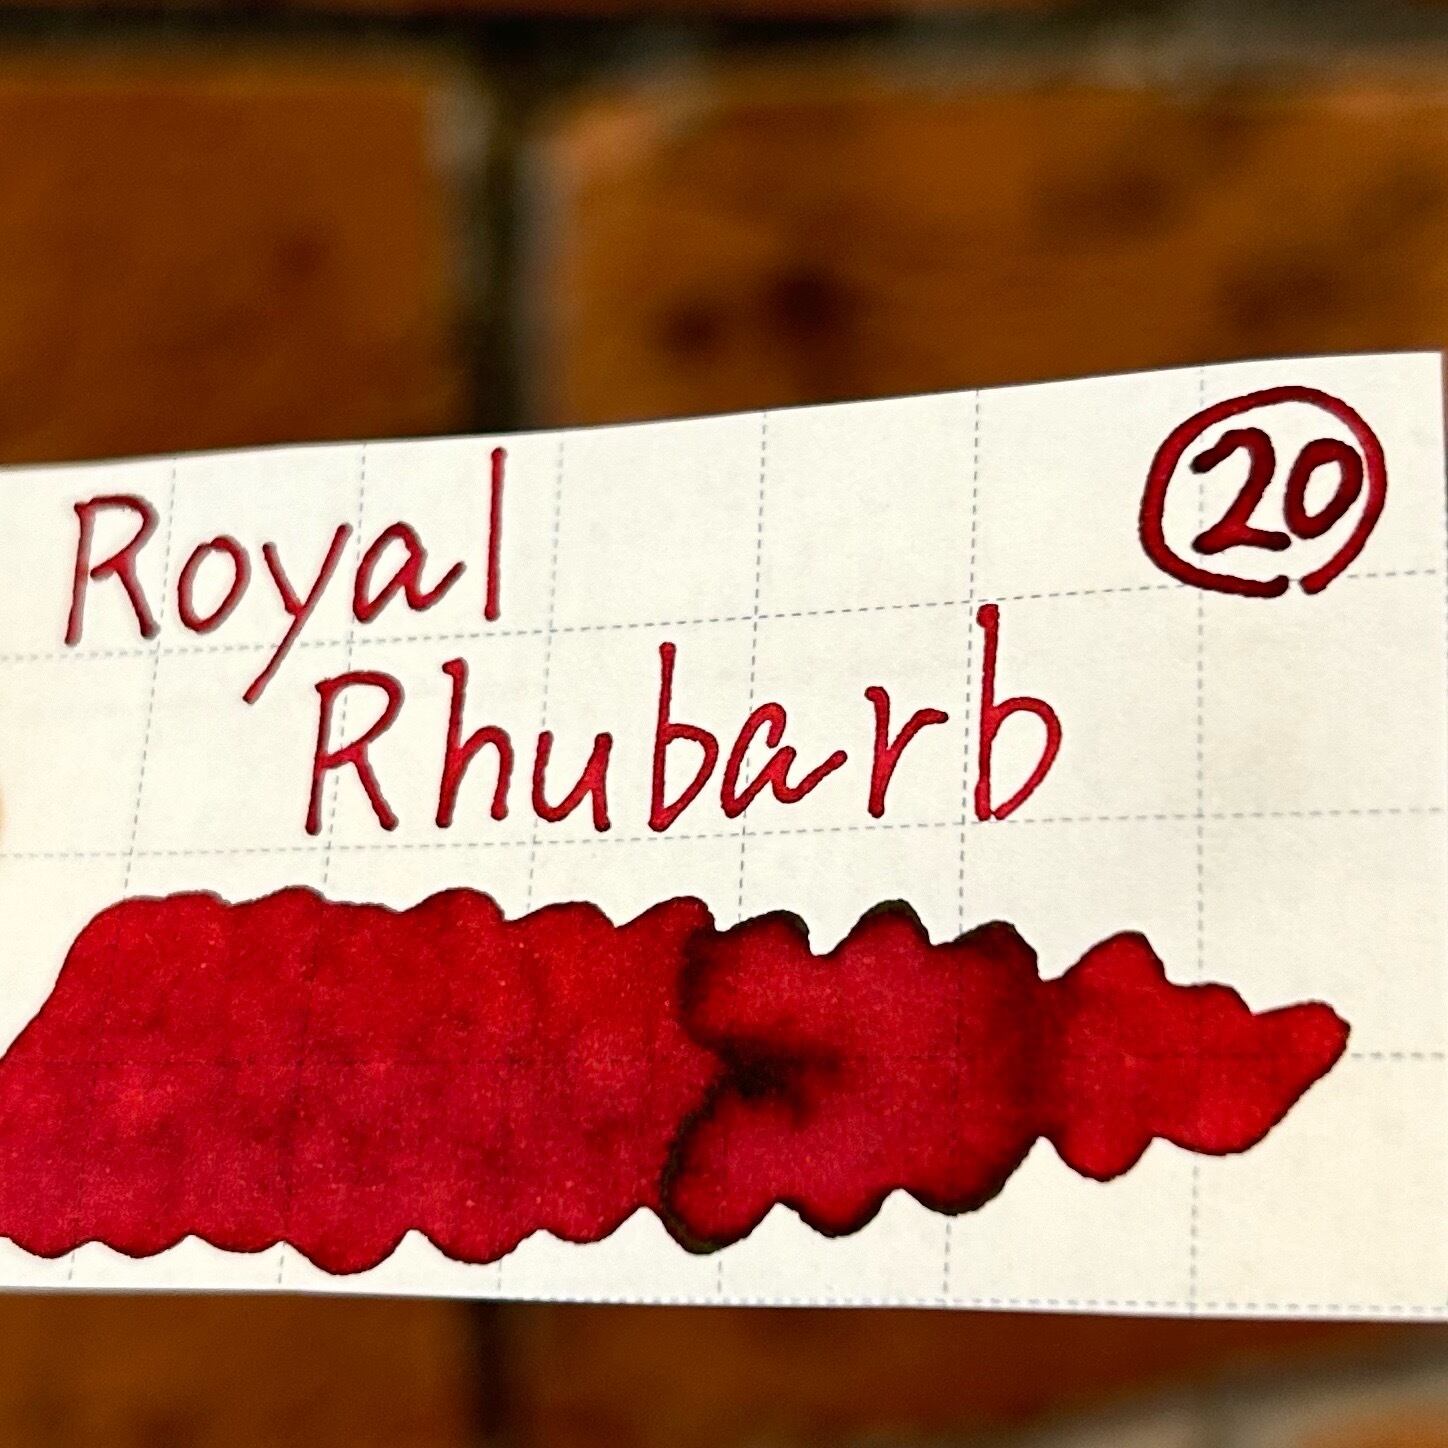 Royal
⑳
Rhubarb